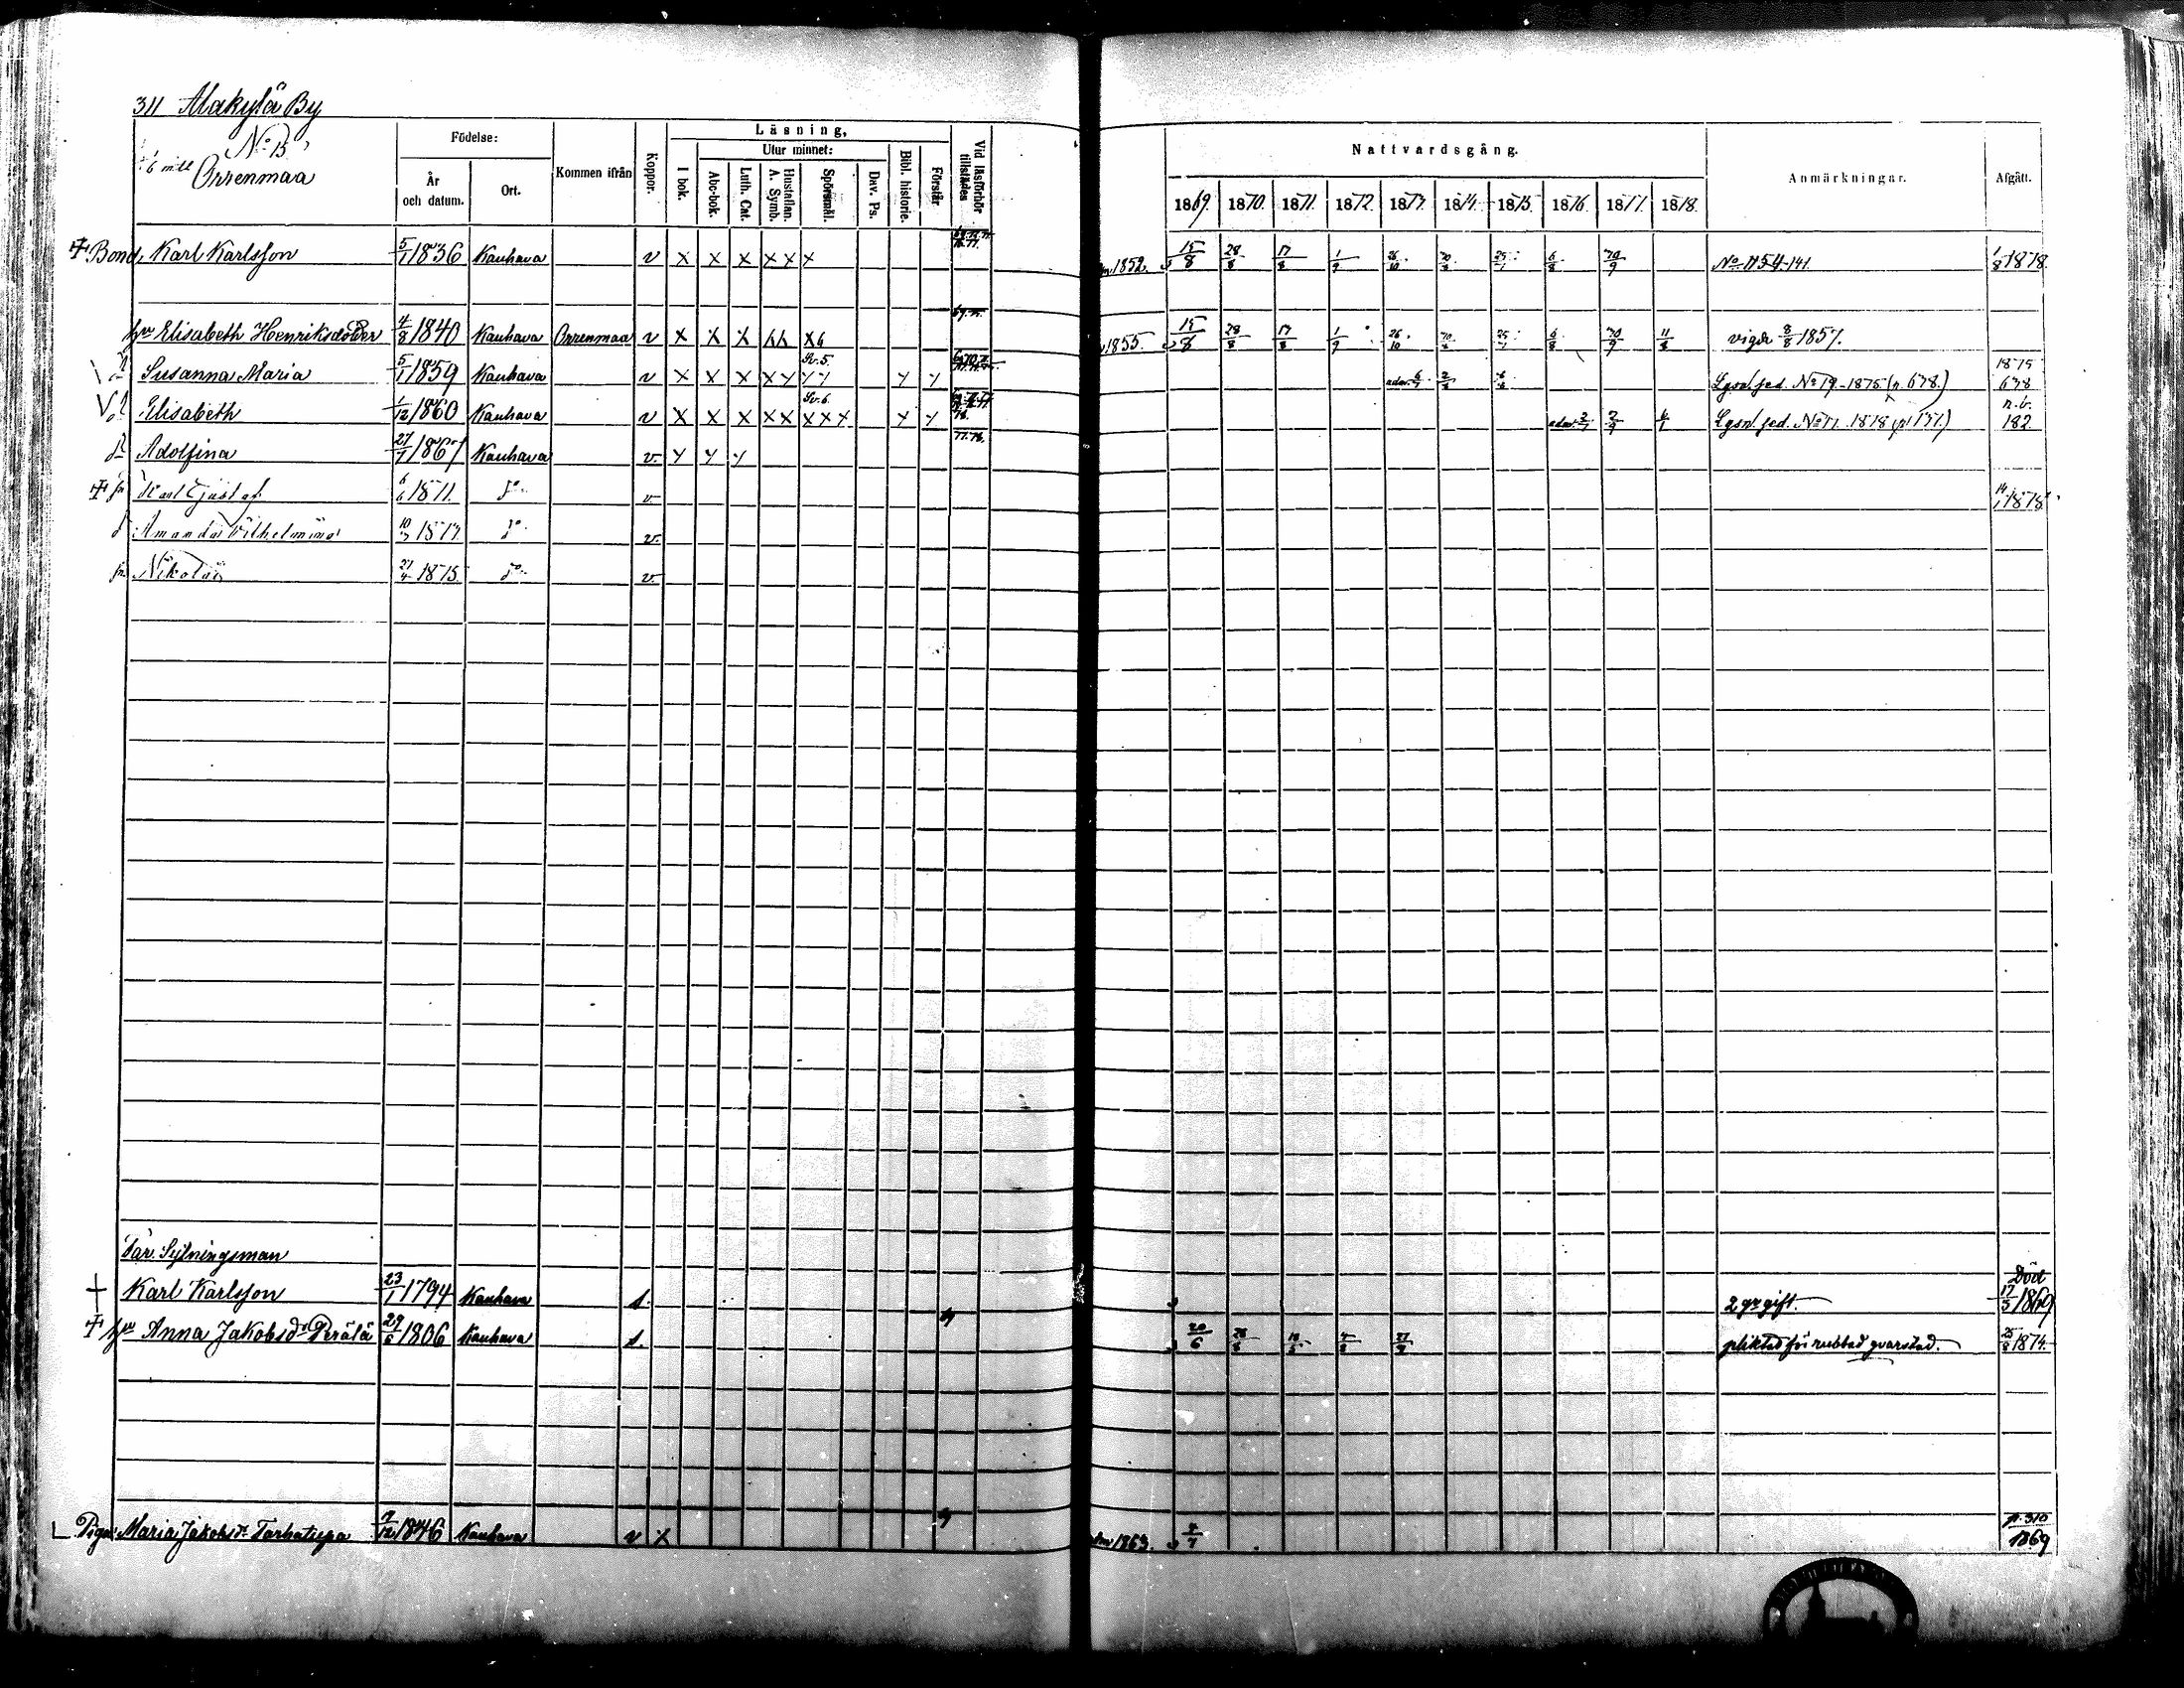 311 Alakylä By
No 15
1/6 mtl
Orrenmaa
Födelse:
År och datum.
Ort.
Kommen ifrån
Koppor.
Läsning,
I bok.
Utur minnet:
Abc-bok.
Luth. Cat.
Hustaflan. A. Symb.
Spörsmål.
Dav. Ps.
Bibl. historie.
Förstår
Vid läsförhör tillstädes
Nattvardsgång.
1869. 1870. 1871. 1872. 1873. 1874. 1875. 1876. 1877. 1878.
Anmärkningar.
Afgått.
Bond. Karl Karlsson 5/1 1836 Kauhava v x x x x x x 1852. 15/8 28/8 17/8 1/9 26/10 6/8 30/9 1/8 1878.
hu Elisabeth Henriksdotter 4/8 1840 Kauhava Orrenmaa v x x x x6 1855. 15/8 28/8 17/8 1/9 26/10 6/8 30/9 11/8 vigde 8/8 1857.
d Susanna Maria 5/1 1859 Kauhava v x x x x Sv. 5. Lgsn. sed. No 19-1875 (p. 678.) 1875 678
d Elisabeth 1/12 1860 Kauhava v x x x x x x x x Sv. 6. Lgsn. sed. 1878 n.b. 182
d Adolfina 27/7 1867 Kauhava v. 77.78.
sn Karl Gustaf 6/6 1871. do v. 14/1 1878
d Amanda Vilhelmina 1873. do v.
sn Nikolai 27/4 1875. do v.
Far. Sytningsman
Karl Karlsson 23/1 1794 Kauhava s. 2 gr gift. Död 17/3 1869
hu Anna Jakobsdr Perälä 1806 Kauhava s. 20/6 28/8 pliktad för rubbad qvarstad. 25/8 1874.
Piga Maria Jakobsdr 1846 Kauhava v x 1863. p. 310 1869